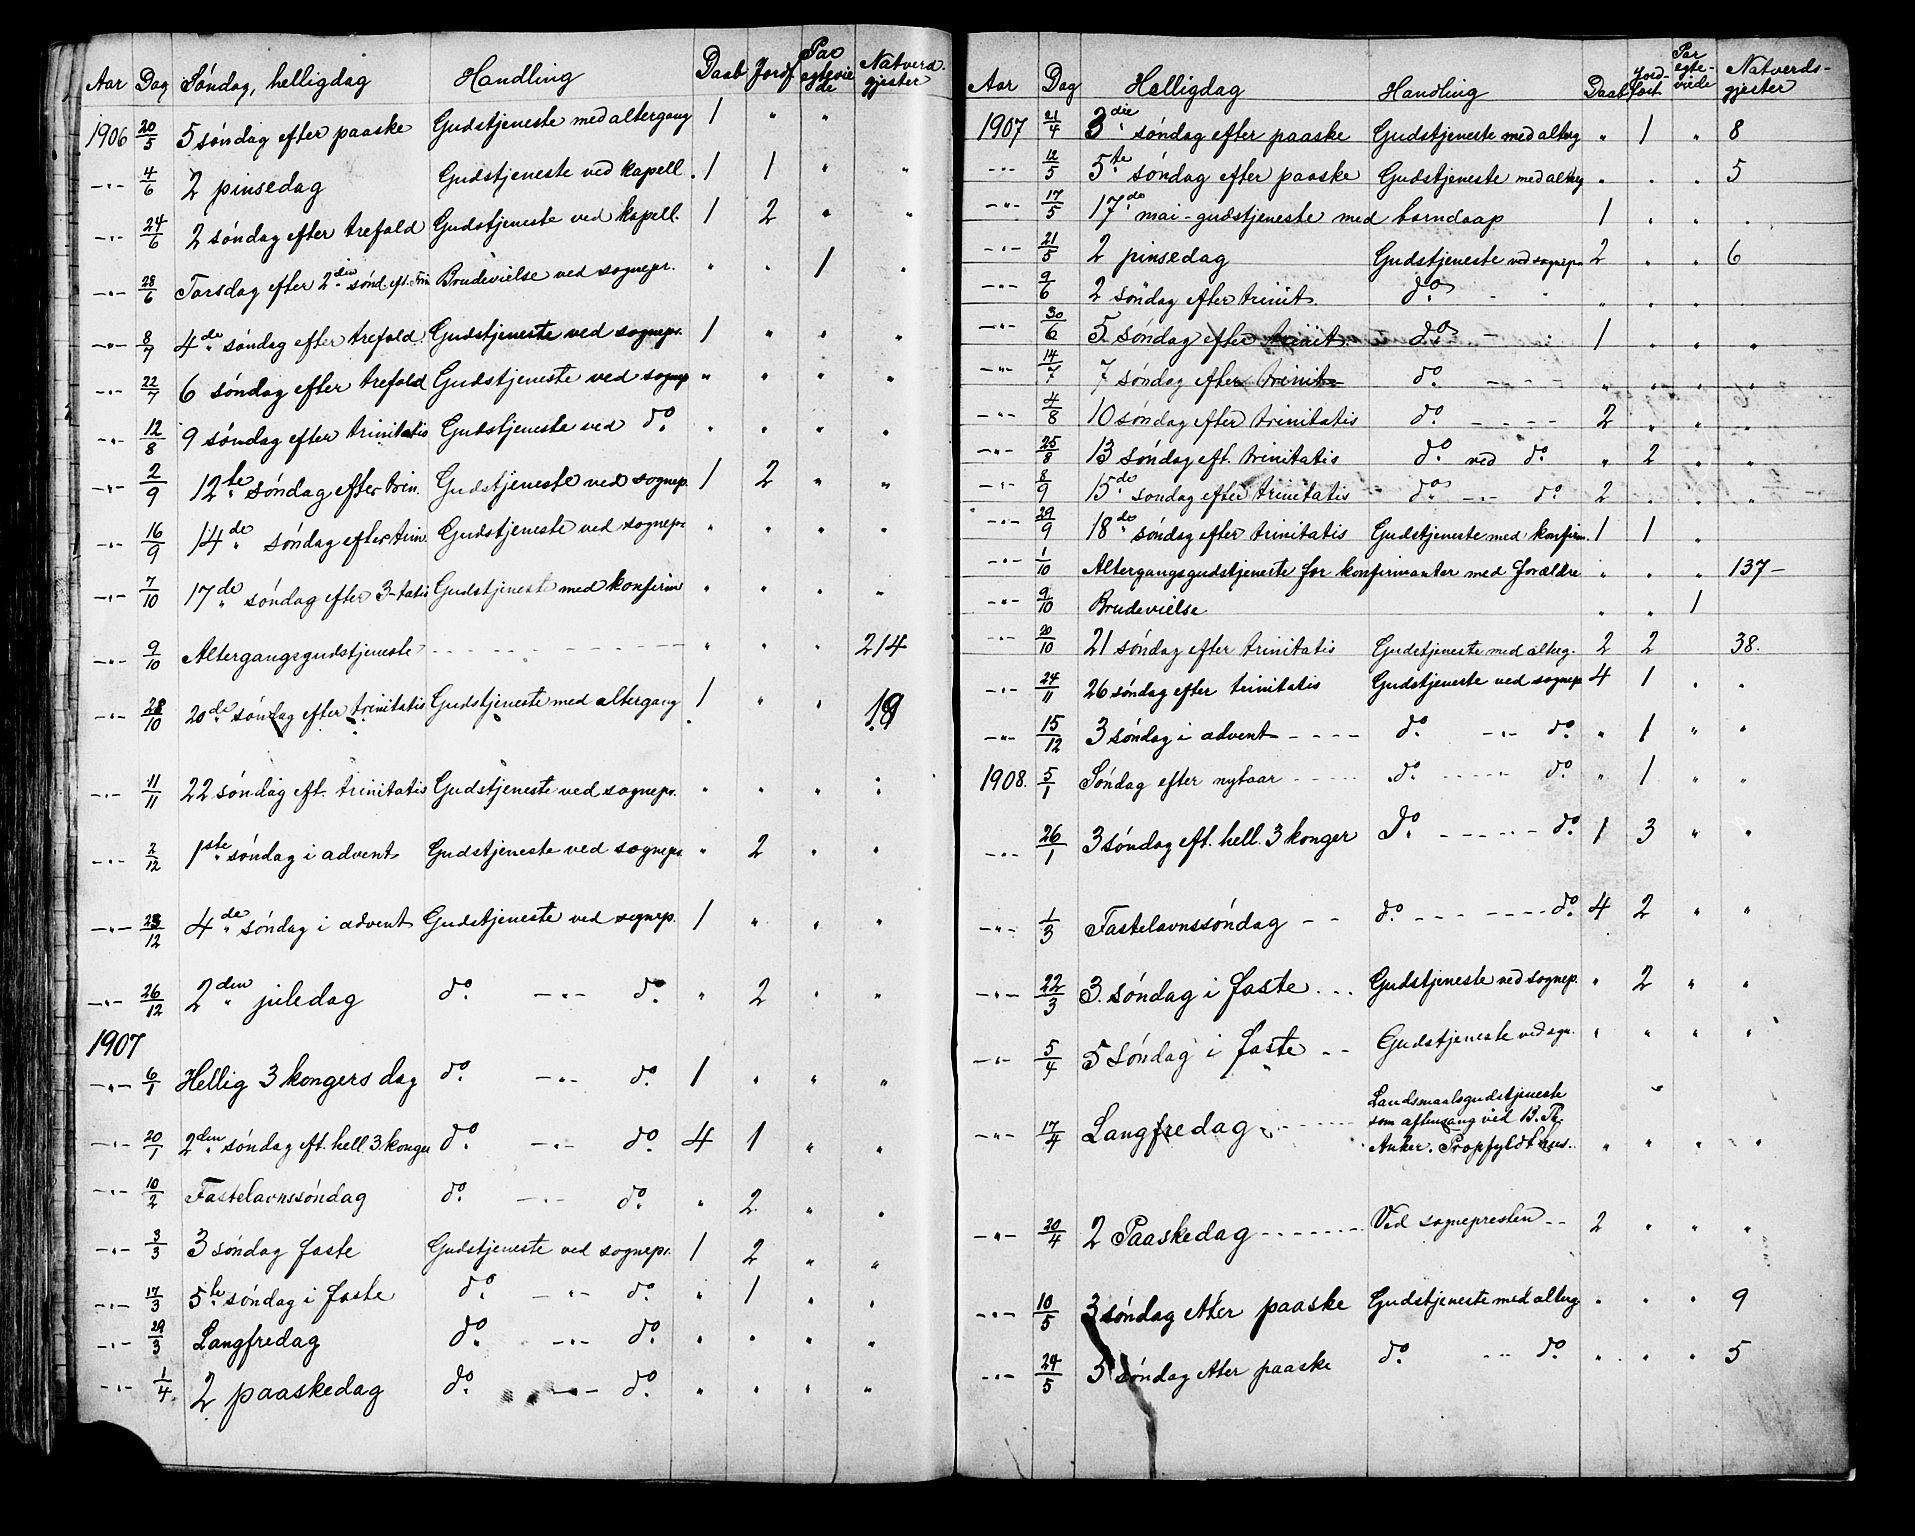 Aar Dag Søndag, helligdag Handling Daab Jordf. Par ægtevie de Natverd- gjester
1906 20/5 5 søndag efter paaske Gudstjeneste med altergang 1 " "
-"- 4/6 2 pinsedag Gudstjeneste ved kapell. 1 1 " "
-"- 24/6 2 søndag efter trefold Gudstjeneste ved kapell. 1 2 " "
-"- 28/6 Torsdag efter 2den sønd eft. Trin Brudevielse ved sognepr. " " 1 "
-"- 8/7 4de søndag efter trefold. Gudstjeneste ved sognepr. 1 " " "
-"- 22/7 6 søndag efter trefold Gudstjeneste ved sognep " " " "
-"- 12/8 9 søndag efter trinitatis Gudstjeneste ved do. " " " "
-"- 2/9 12te søndag efter trin. Gudstjeneste ved sognep. 1 2 " "
-"- 16/9 14de søndag efter trin. Gudstjeneste ved sognepr " " " "
-"- 7/10 17de søndag efter 3-tatis Gudstjenest med konfirm " " " "
-"- 9/10 Altergangsgudstjeneste - - - - - " " " 214
-"- 28/10 20de søndag efter trinitatis Gudstjeneste med altergang 1 " " 19
-"- 11/11 22 søndag eft. trinitatis Gudstjeneste ved sognepr. " " " "
-"- 2/12 1ste søndag i advent Gudstjeneste ved sognepr. " 2 " "
-"- 23/12 4de søndag i advent Gudstjeneste ved sognep. 1 " " "
-"- 26/12 2den juledag do. -"- do. " 2 " "
1907
-"- 6/1 Hellig 3 kongers dag do. -"- do. 1 " " "
-"- 20/1 2den søndag eft. hell. 3. konger do. -"- do. 4 1 " "
-"- 10/2 Fastelavnssøndag do. -"- do. " 2 " "
-"- 3/3 3 søndag faste Gudstjeneste ved sognepr. 1 2 " "
-"- 17/3 5te søndag i faste do. -"- do. " 1 " "
-"- 29/3 Langfredag do. -"- do. " " " "
-"- 1/4 2 paaskedag do. -"- do. " " " "
Aar Dag Helligdag Handling Daab Jord- fæst. Par egte- viede Natverds- gjester
1907 21/4 3die søndag efter paaske Gudstjeneste med alterg " 1 " 8
-"- 12/5 5te søndag efter paaske Gudstjeneste med alterg " " " 5
-"- 17/5 17de mai-gudstjeneste med barndaap 1 " " "
-"- 21/5 2 pinsedag Gudstjeneste ved sognepr 2 " " 6
-"- 9/6 2 søndag efter trinit. do. - " " " " "
-"- 30/6 5 søndag efter trinit. do. - 1 " " "
-"- 14/7 7 søndag efter trinit. do. - - - - " " " "
-"- 4/8 10 søndag efter trinitatis do. - - - - 2 " " "
-"- 25/8 13 søndag eft. trinitatis do. ved do. " 2 " "
-"- 8/9 15de søndag efter trinitatis do. -"- do. 2 " " "
-"- 29/9 18de søndag efter trinitatis Gudstjeneste med konfirm. 1 1 "
-"- 1/10 Altergangsgudstjeneste for konfirmanter med forældre " " " 137-
-"- 9/10 Brudevielse " " 1
-"- 20/10 21 søndag efter trinitatis Gudstjeneste med alterg. 2 2 38.
-"- 24/11 26 søndag efter trinitatis Gudstjeneste ved sognep 4 1 " "
-"- 15/12 3 søndag i advent - - - - do. -"- do. " 1 " "
1908. 5/1 Søndag efter nytaar - - - - do. - - - - do. " 1 " "
-"- 26/1 3 søndag eft. hell. 3 konger do. - - - - do. 1 3 " "
-"- 1/3 Fastelavnssøndag - - do. - - - - - - do. 4 2 " "
-"- 22/3 3. søndag i faste. . . Gudstjeneste ved sognep. " 2 " "
-"- 5/4 5 Søndag i faste - - Gudstjeneste ved sgn. " " " "
Landsmaalsgudstjeneste
som aftensang ved B. Th.
-"- 17/4 Langfredag - - - - - - Anker. Propfyldt hus. " " " "
-"- 20/4 2 Paaskedag - - - - - - Ved sognepresten - - 2 " " "
-"- 10/5 3 søndag efter paaske Gudstjeneste med alterg " " " 9
-"- 24/5 5 søndag efter paaske do. -"- do. " " " 5